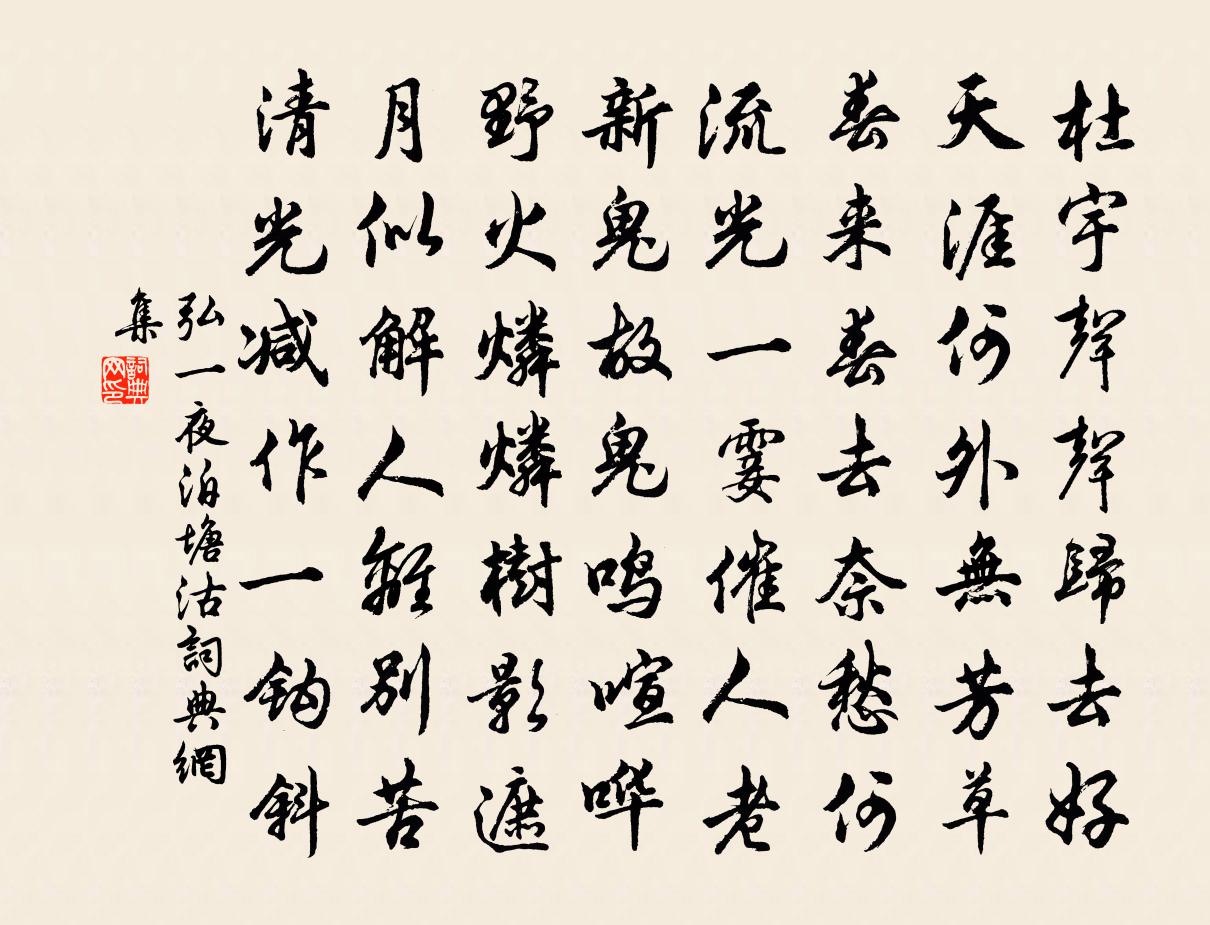 杜宇聲聲歸去好
天涯何外無芳草
春来春去奈愁何
流光一霎催人老
新鬼故鬼鸣喧哗
野火燐燐樹影遮
月似解人離別苦
清光减作一钩斜
弘一夜泊塘沽詞典網
集
詞典
网印